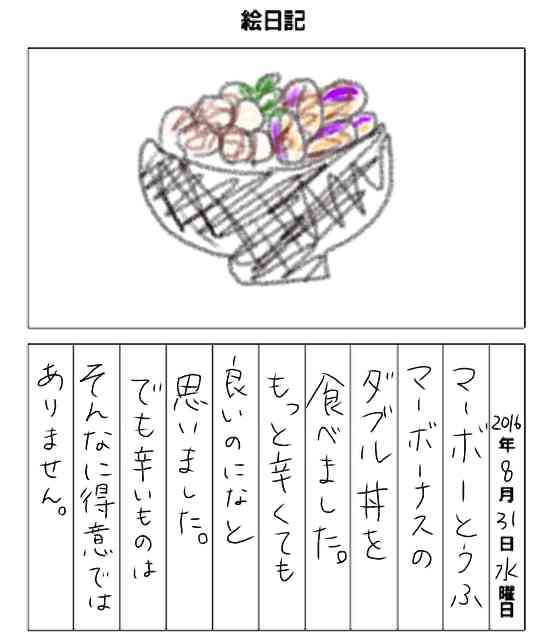 絵日記
2016年8月31日水曜日
マーボーとうふ
マーボーナスの
ダブル丼を
食べました。
もっと辛くても
良いのになと
思いました。
でも辛いものは
そんなに得意では
ありません。